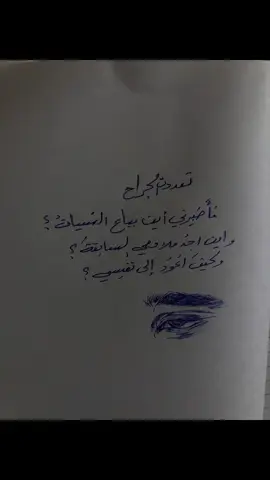 تعددت الجراح
فأخبرني أين يباع النسيان ؟
واين اجد ملامحي السابقة ؟
وكيف اعود إلى نفسي ؟